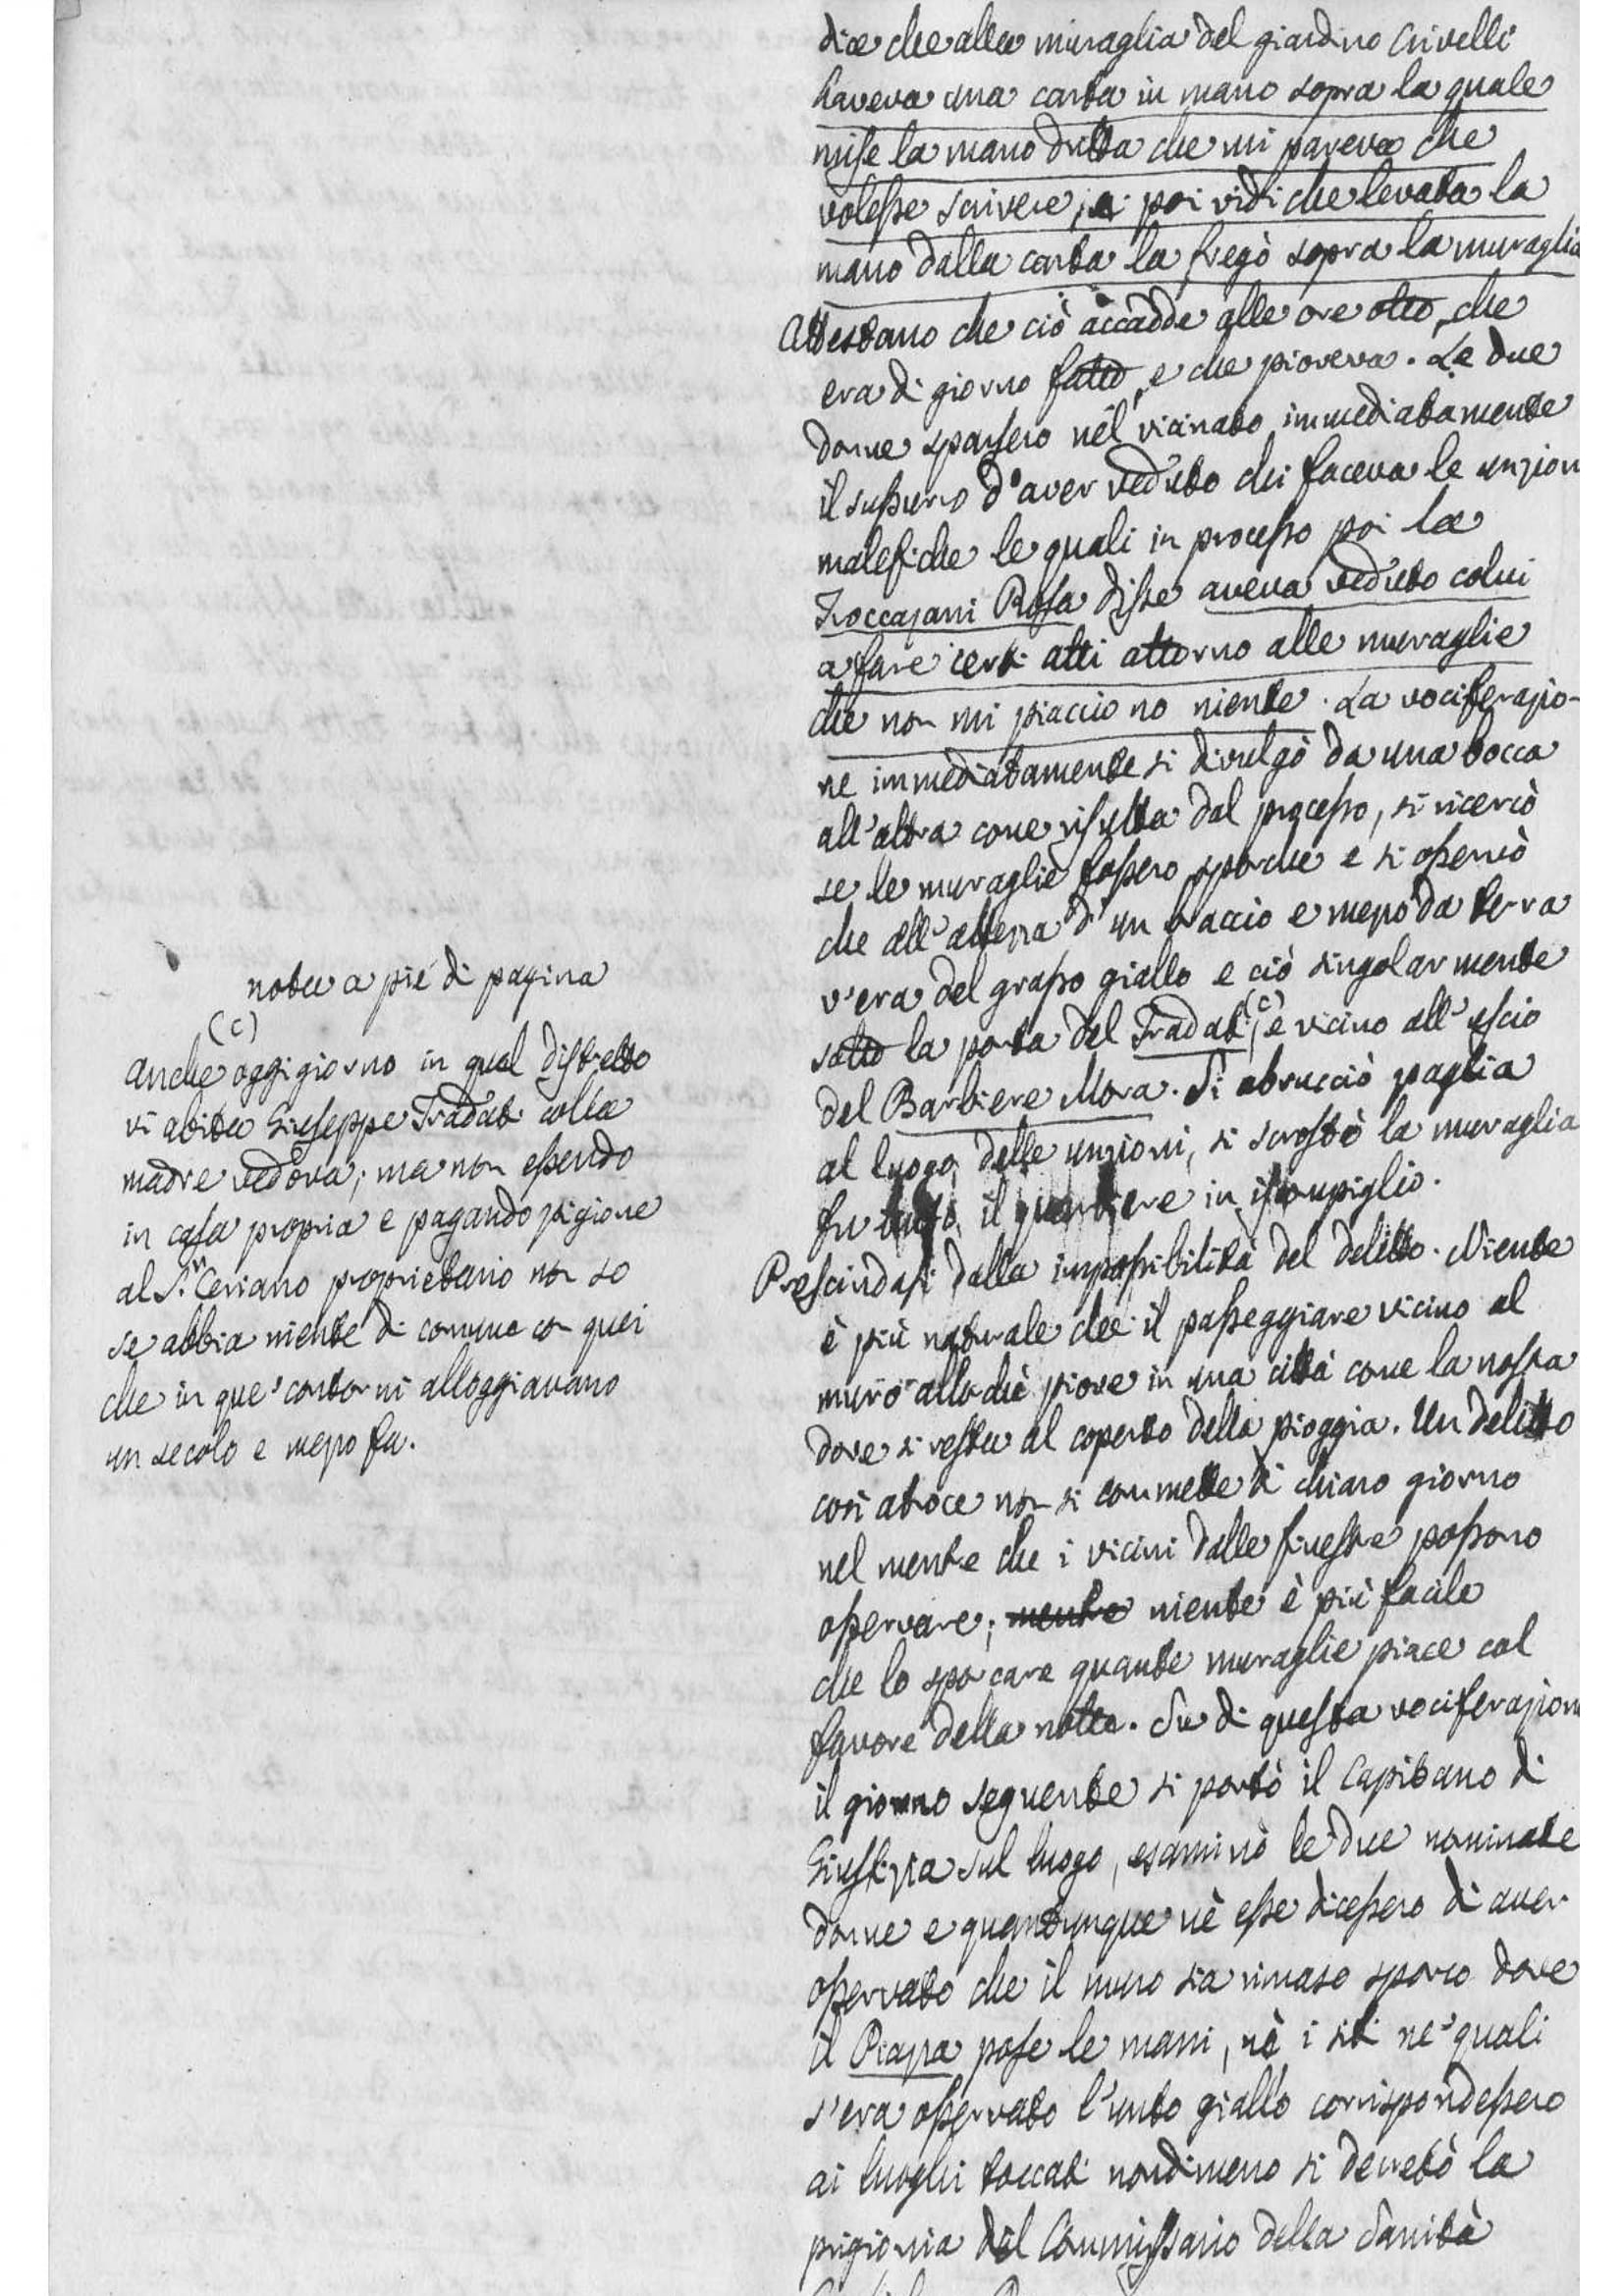 dice che alla muraglia del giardino Crivelli
haveva una carta in mano sopra la quale
mise la mano dritta che mi pareva che
volesse scrivere, e poi vidi che levata la
mano dalla carta la fregò sopra la muraglia
Attestano che ciò accadde alle ore otto, che
era di giorno fatto, e che pioveva. Le due
donne sparsero nel vicinato immediatamente
il sussurro d'aver veduto chi faceva le unzion
malefiche le quali in processo poi la
Troccazani Rosa disse aveva veduto colui
a fare certi atti attorno alle muraglie
che non mi piacciono niente. La vociferazio-
ne immediatamente si divulgò da una bocca
all'altra come risulta dal processo, si ricercò
se le muraglie fossero sporche e si osservò
che all'altezza d'un braccio e mezzo da terra
v'era del grasso giallo e ciò singolarmente
sotto la porta del Tradati (c), e vicino all'uscio
del Barbiere Mora. Si abrucciò paglia
al luogo delle unzioni, si scrostò la muraglia
fu tutto il quartiere in iscompiglio.
Prescindasi dalla impossibilità del delitto. Niente
è più naturale che il passeggiare vicino al
muro allorchè piove in una città come la nostra
dove si resta al coperto della pioggia. Un delitto
così atroce non si commette di chiaro giorno
nel mentre che i vicini dalle finestre possono
osservare; mentre niente è più facile
che lo sporcare quante muraglie piace col
favore della notte. Su di questa vociferazion
il giorno seguente si portò il Capitano di
Giustizia sul luogo, esaminò le due nominate
donne e quantunque nè esse dicessero di aver
osservato che il muro sia rimaso sporco dove
il Piazza pose le mani, nè i siti ne' quali
s'era osservato l'unto giallo corrispondessero
ai luoghi toccati nondimeno si decretò la
prigionia del Commissario della Sanità
nota a piè di pagina
(c)
anche oggi giorno in qual distretto
vi abita Giuseppe Tradati colla
madre vedova; ma non essendo
in casa propria e pagando pigione
al S.r Ceriano proprietario non so
se abbia niente di comune con quei
che in que' contorni alloggiavano
un secolo e mezzo fa.